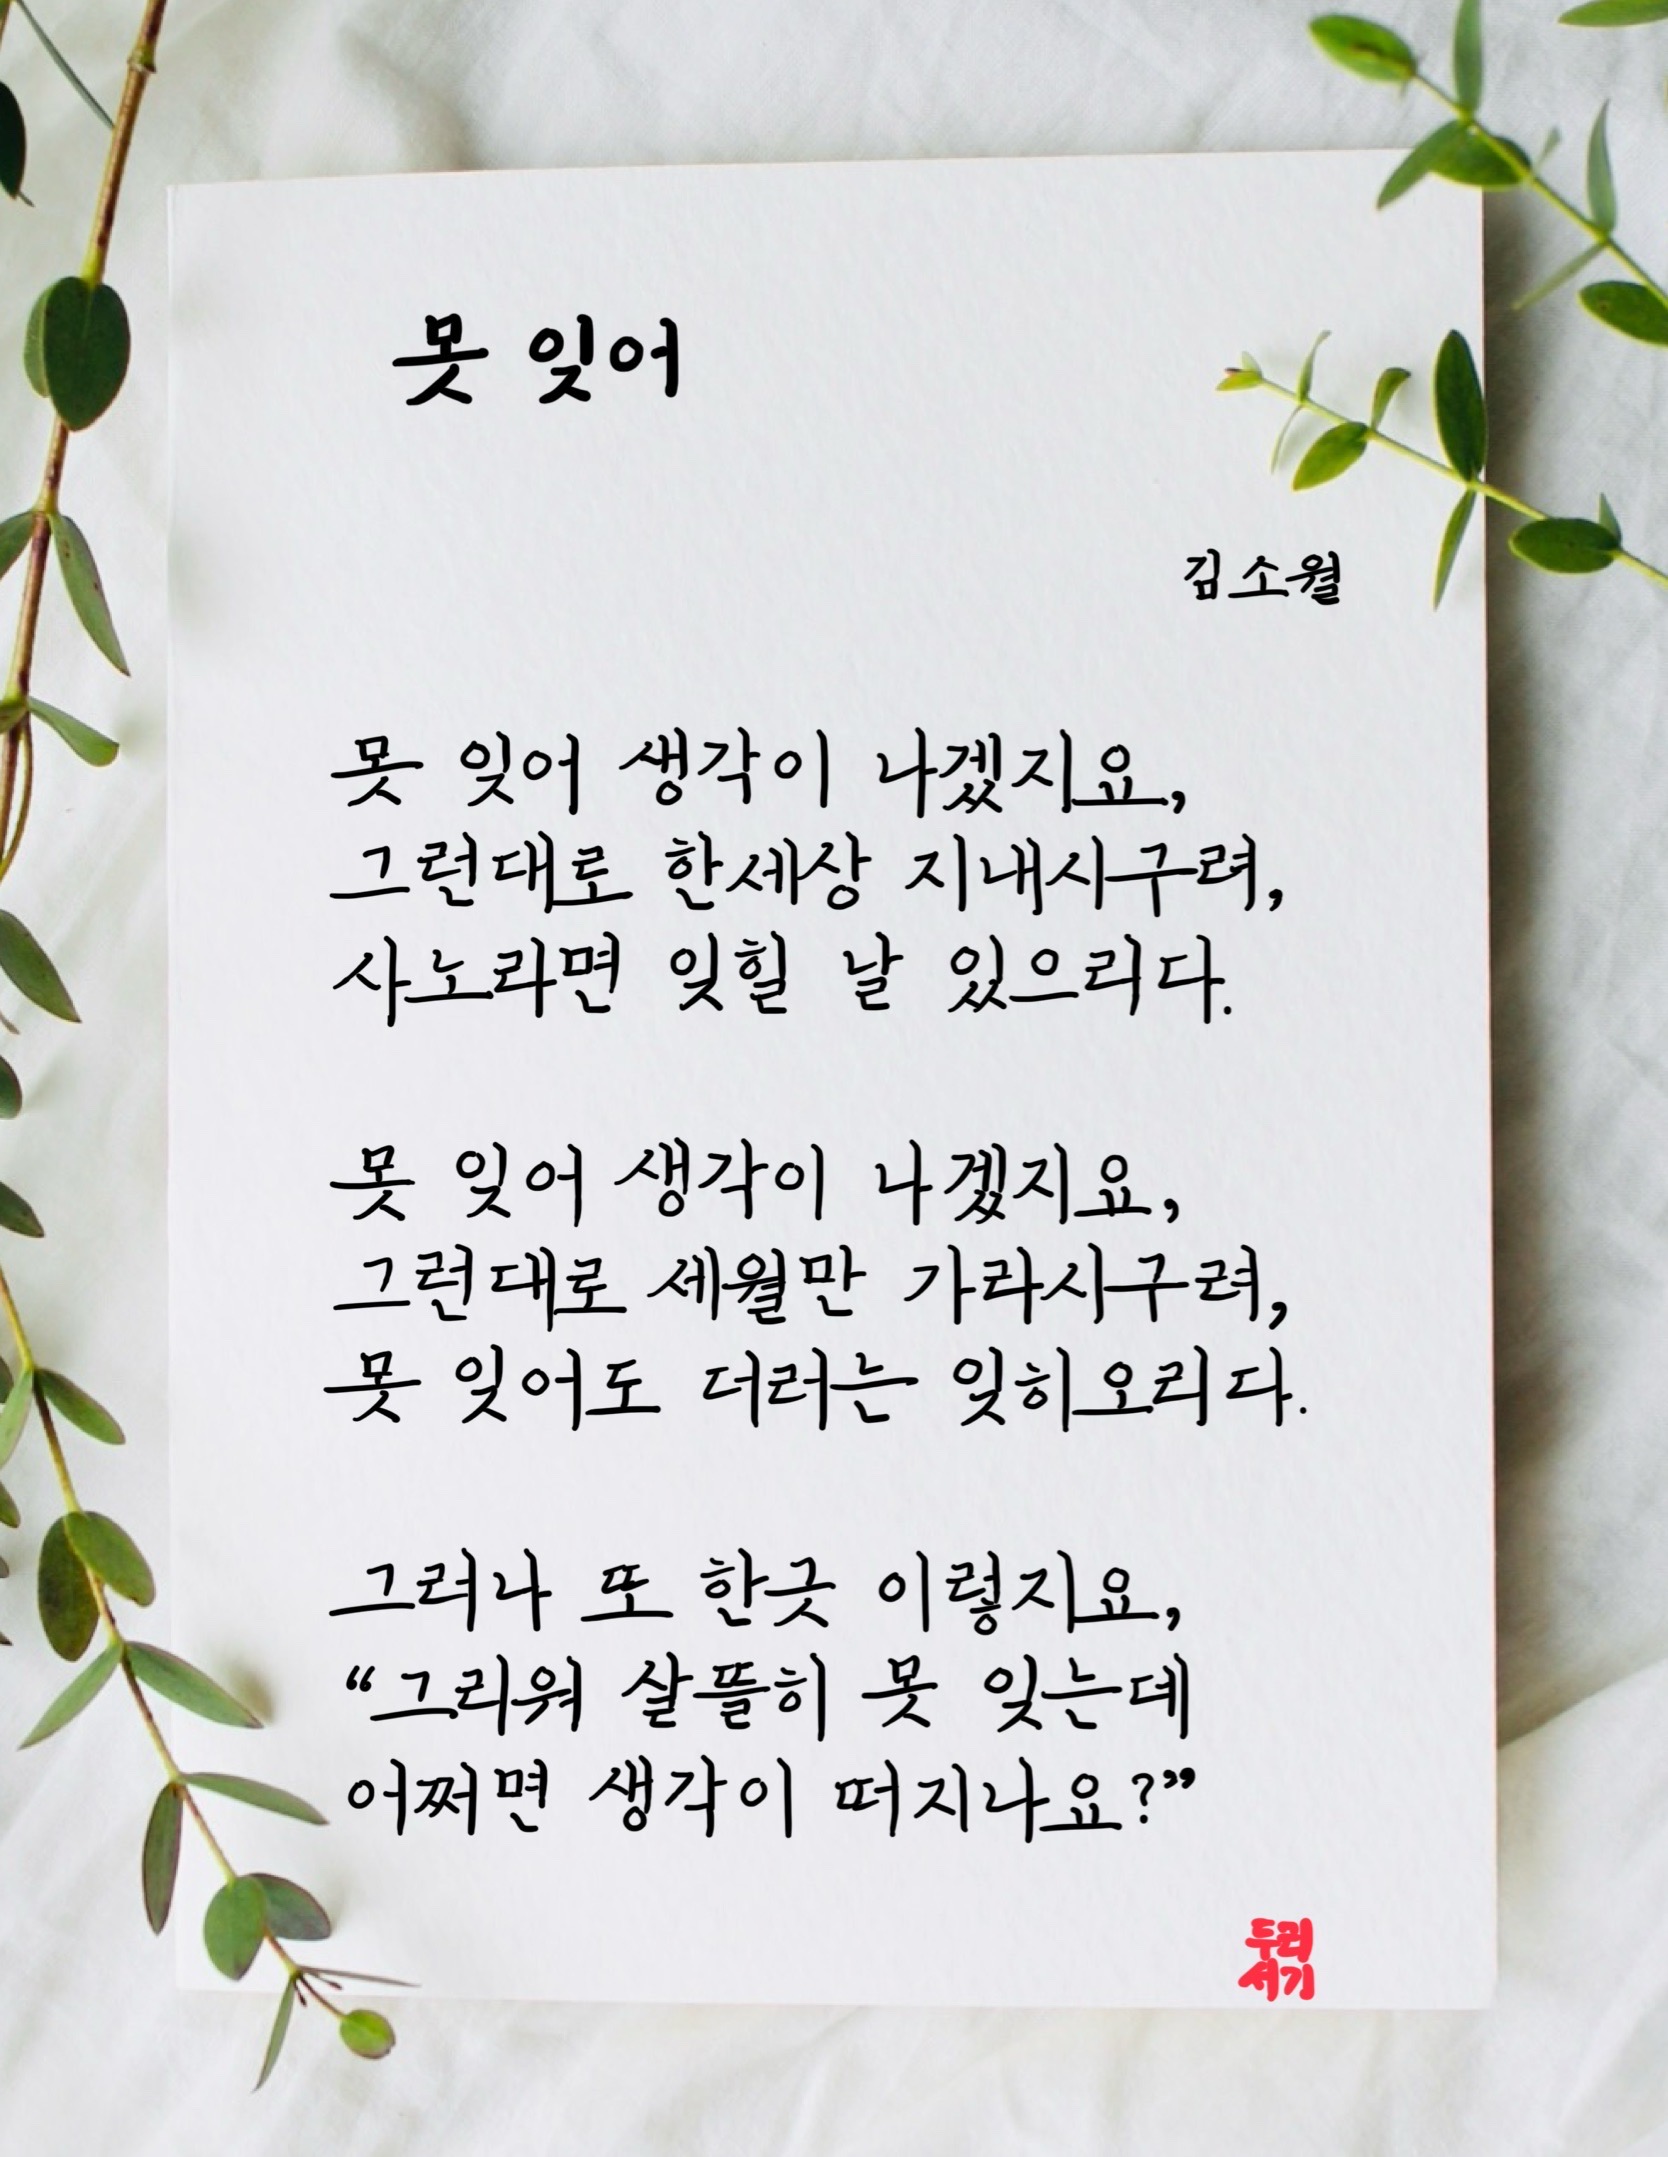 못 잊어
김소월
못 잊어 생각이 나겠지요,
그런대로 한세상 지내시구려,
사노라면 잊힐 날 있으리다.
못 잊어 생각이 나겠지요,
그런대로 세월만 가라시구려,
못 잊어도 더러는 잊히오리다.
그러나 또 한긋 이렇지요,
“그리워 살뜰히 못 잊는데
어쩌면 생각이 떠지나요?”
두리
서기